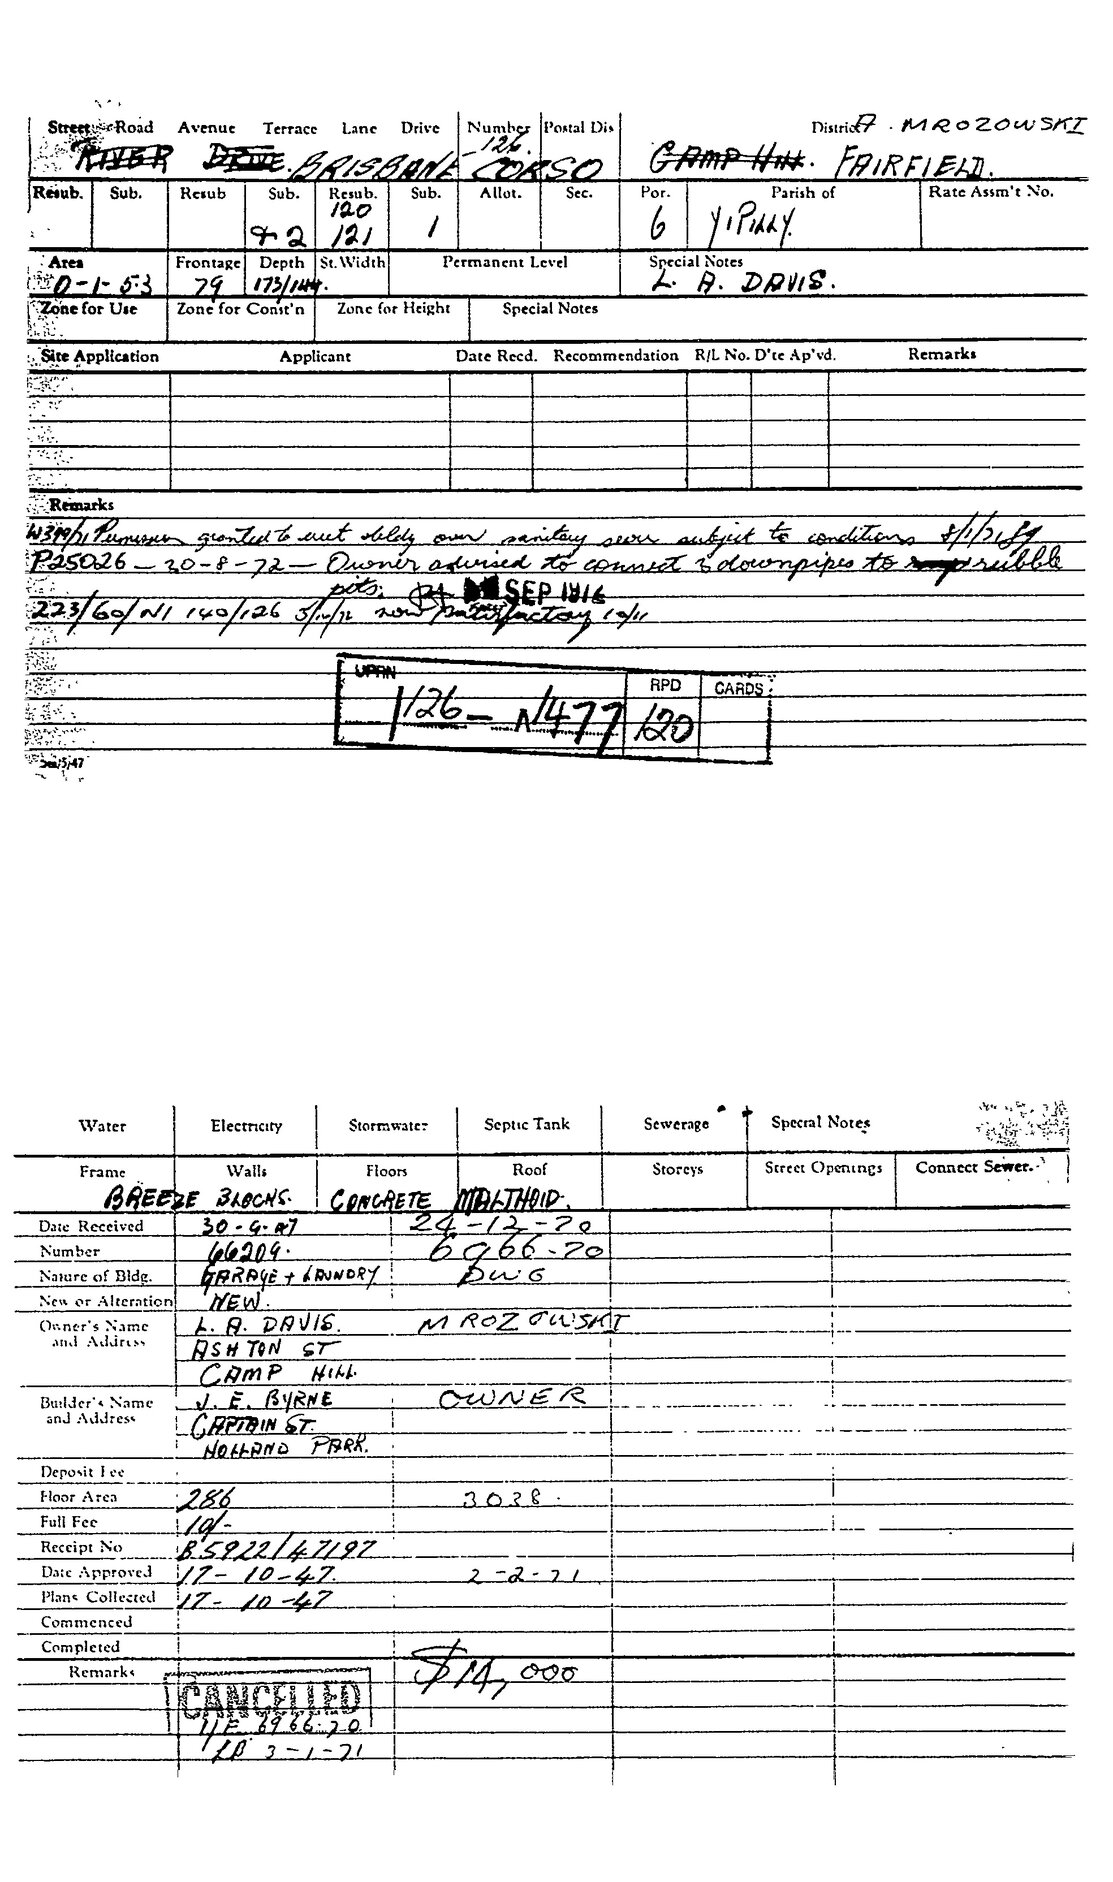 Street Road Avenue Terrace Lane Drive Number Postal Dis District A. MROZOWSKI
126
RIVER DRIVE. BRISBANE CORSO CAMP HILL. FAIRFIELD.
Resub. Sub. Resub Sub. Resub. Sub. Allot. Sec. Por. Parish of Rate Assm't No.
120
& 2 121 1 6 YIPILLY.
Area Frontage Depth St. Width Permanent Level Special Notes
0-1-5.3 79 173/144. L. A. DAVIS.
Zone for Use Zone for Const'n Zone for Height Special Notes
Site Application Applicant Date Recd. Recommendation R/L No. D'te Ap'vd. Remarks
Remarks
Permission granted to erect bldg over sanitary sewer subject to conditions 8/1/71
P25026 - 20-8-72 - Owner advised to connect downpipes to rubble
pits. SEP 1976
223/60/N1 140/126 now satisfactory 10/11
UPRN RPD CARDS
1126 - N477 120
Water Electricity Stormwater Septic Tank Sewerage Special Notes
Frame Walls Floors Roof Storeys Street Openings Connect Sewer.
BREEZE BLOCKS. CONCRETE MALTHOID.
Date Received 30-9-47 24-12-70
Number 66209. 6966-70
Nature of Bldg. GARAGE + LAUNDRY DWG
New or Alteration NEW.
Owner's Name L. A. DAVIS. MROZOWSKI
and Address ASHTON ST
CAMP HILL
Builder's Name J. E. BYRNE OWNER
and Address CAPTAIN ST.
HOLLAND PARK.
Deposit Fee
Floor Area 286 3038.
Full Fee 10/-
Receipt No B5922/47197
Date Approved 17-10-47. 2-2-71
Plans Collected 17-10-47
Commenced
Completed
Remarks $14,000
CANCELLED
6966-70
3-1-71